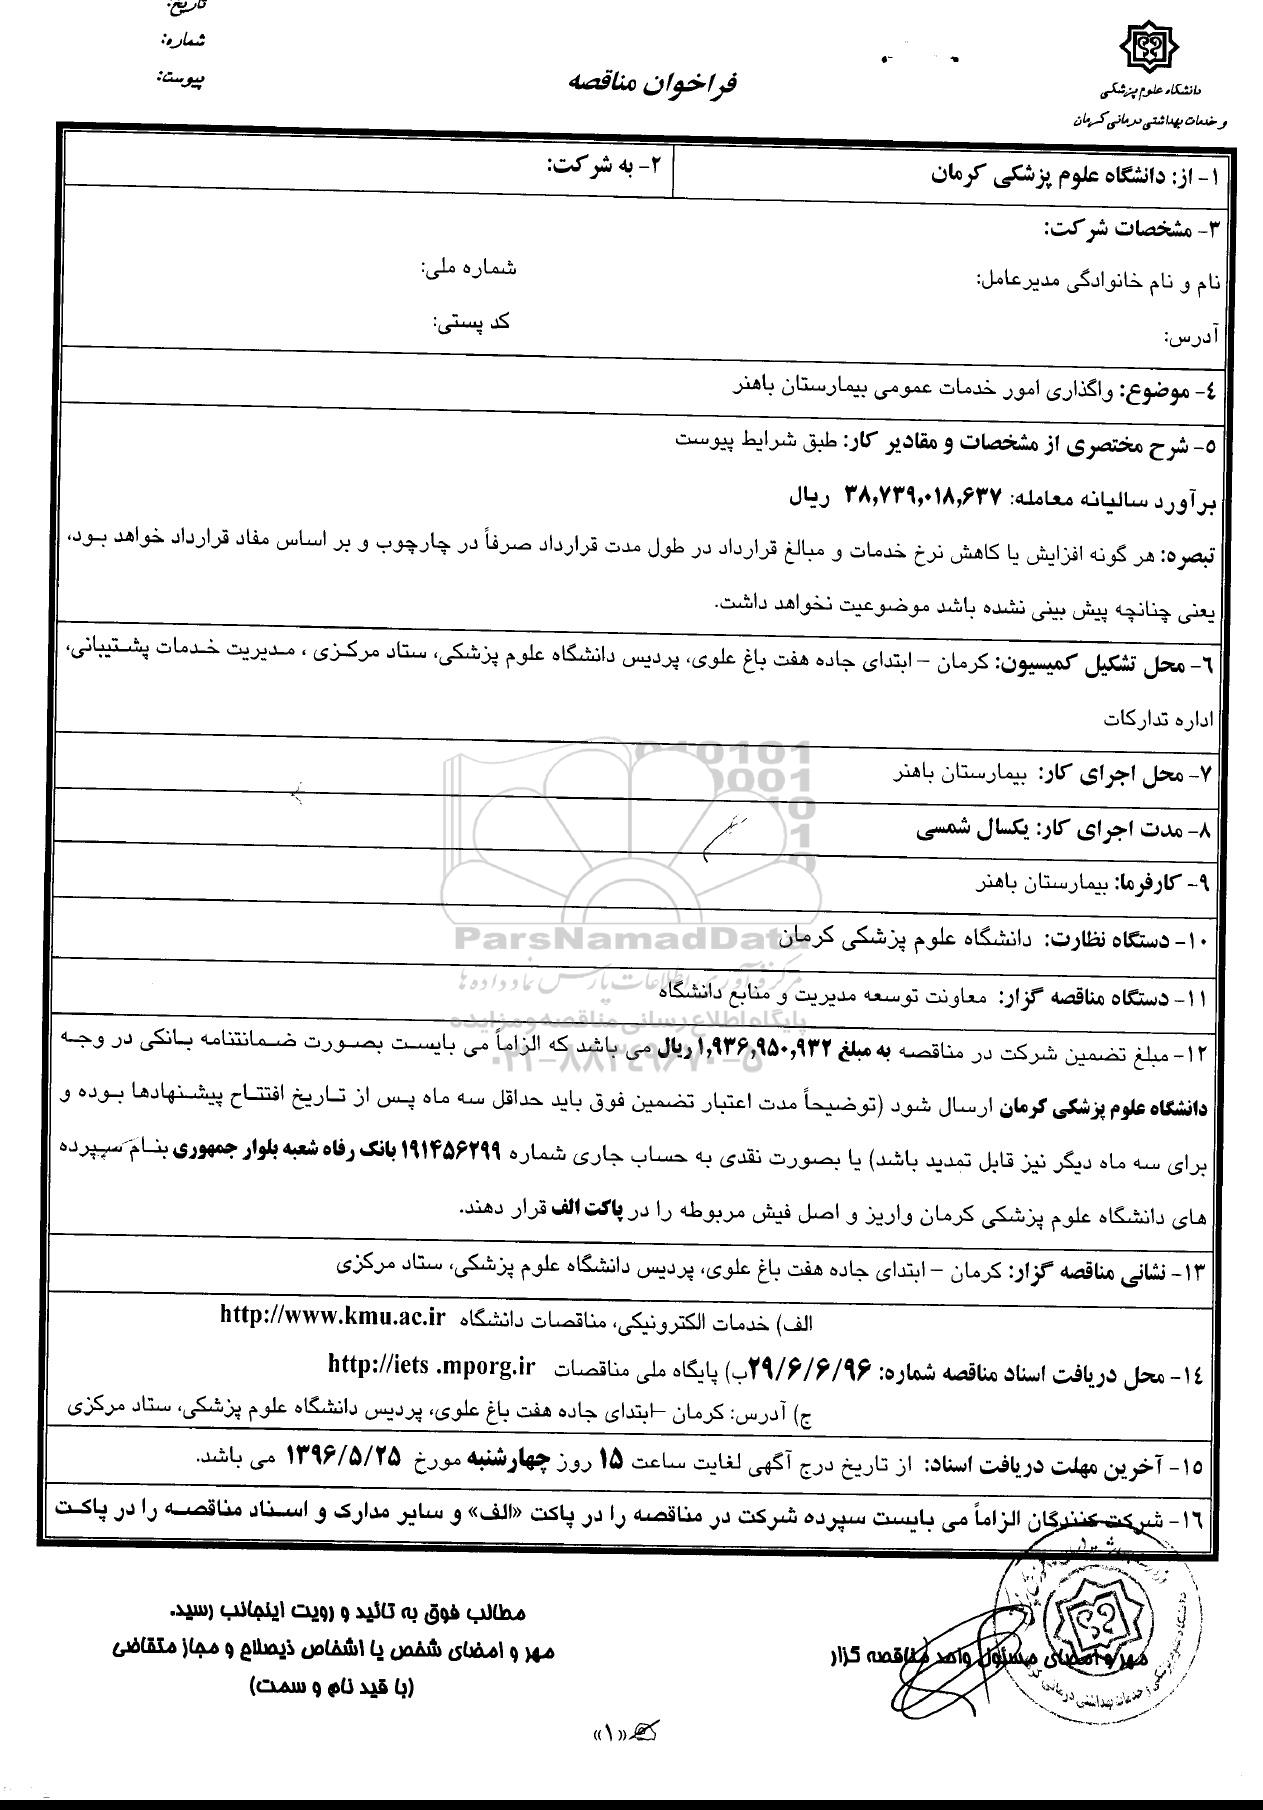 تاریخ:
شماره:
پیوست:
دانشگاه علوم پزشکی
و خدمات بهداشتی درمانی کرمان
فراخوان مناقصه
۱- از: دانشگاه علوم پزشکی کرمان
۲- به شرکت:
۳- مشخصات شرکت:
نام و نام خانوادگی مدیرعامل: شماره ملی:
آدرس: کد پستی:
۴- موضوع: واگذاری امور خدمات عمومی بیمارستان باهنر
۵- شرح مختصری از مشخصات و مقادیر کار: طبق شرایط پیوست
برآورد سالیانه معامله: ۳۸,۷۳۹,۰۱۸,۶۳۷ ریال
تبصره: هر گونه افزایش یا کاهش نرخ خدمات و مبالغ قرارداد در طول مدت قرارداد صرفاً در چارچوب و بر اساس مفاد قرارداد خواهد بود،
یعنی چنانچه پیش بینی نشده باشد موضوعیت نخواهد داشت.
۶- محل تشکیل کمیسیون: کرمان – ابتدای جاده هفت باغ علوی، پردیس دانشگاه علوم پزشکی، ستاد مرکزی ، مدیریت خدمات پشتیبانی،
اداره تدارکات
۷- محل اجرای کار: بیمارستان باهنر
۸- مدت اجرای کار: یکسال شمسی
۹- کارفرما: بیمارستان باهنر
۱۰- دستگاه نظارت: دانشگاه علوم پزشکی کرمان
ParsNamadData
مرکز فرآوری اطلاعات پارس نماد داده ها
۱۱- دستگاه مناقصه گزار: معاونت توسعه مدیریت و منابع دانشگاه
پایگاه اطلاع رسانی مناقصه و مزایده
۰۲۱-۸۸۳۴۹۶۷۰-۵
۱۲- مبلغ تضمین شرکت در مناقصه به مبلغ ۱,۹۳۶,۹۵۰,۹۳۲ ریال می باشد که الزاماً می بایست بصورت ضمانتنامه بانکی در وجه
دانشگاه علوم پزشکی کرمان ارسال شود (توضیحاً مدت اعتبار تضمین فوق باید حداقل سه ماه پس از تاریخ افتتاح پیشنهادها بوده و
برای سه ماه دیگر نیز قابل تمدید باشد) یا بصورت نقدی به حساب جاری شماره ۱۹۱۴۵۶۲۹۹ بانک رفاه شعبه بلوار جمهوری بنام سپرده
های دانشگاه علوم پزشکی کرمان واریز و اصل فیش مربوطه را در پاکت الف قرار دهند.
۱۳- نشانی مناقصه گزار: کرمان – ابتدای جاده هفت باغ علوی، پردیس دانشگاه علوم پزشکی، ستاد مرکزی
الف) خدمات الکترونیکی، مناقصات دانشگاه http://www.kmu.ac.ir
۱۴- محل دریافت اسناد مناقصه شماره: ۲۹/۶/۶/۹۶ ب) پایگاه ملی مناقصات http://iets .mporg.ir
ج) آدرس: کرمان –ابتدای جاده هفت باغ علوی، پردیس دانشگاه علوم پزشکی، ستاد مرکزی
۱۵- آخرین مهلت دریافت اسناد: از تاریخ درج آگهی لغایت ساعت ۱۵ روز چهارشنبه مورخ ۱۳۹۶/۵/۲۵ می باشد.
۱۶- شرکت کنندگان الزاماً می بایست سپرده شرکت در مناقصه را در پاکت «الف» و سایر مدارک و اسناد مناقصه را در پاکت
مهر و امضای مسئول واحد مناقصه گزار
مطالب فوق به تائید و رویت اینجانب رسید.
مهر و امضای شخص یا اشخاص ذیصلاح و مجاز متقاضی
(با قید نام و سمت)
«۱»